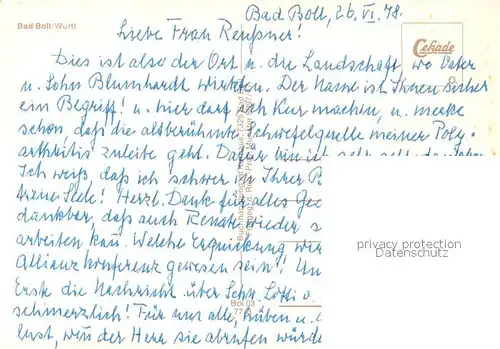 Bad Boll, 26. VI. 78.
Bad Boll/Württ
Cekade
Liebe Frau Renßner!
Dies ist also der Ort u. die Landschaft, wo Vater
u. Sohn Blumhardt wirkten. Der Name ist Ihnen sicher
ein Begriff! u. hier darf ich Kur machen, u. merke
schon, daß die altberühmte Schwefelquelle meiner Poly-
arthritis zuleibe geht. Dafür bin ich sehr, sehr dankbar
Ich weiß, daß ich schwer in Ihrer
Seele! Herzl. Dank für alles
dankbar, daß auch Renate wieder
arbeiten kan. Welche Erquickung
privacy protection
Datenschutz
Allianzkonferenz gewesen sein! Un
Erste die Nachricht über Schw. Lotti
Bol 03
schmerzlich! Für uns alle, hüben u.
lust, wen der Herr sie abrufen würde